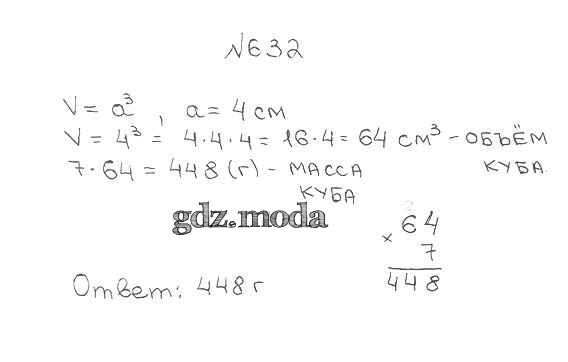 №632
V = a³, a = 4 см
V = 4³ = 4·4·4 = 16·4 = 64 см³ – ОБЪЁМ КУБА.
7·64 = 448 (г) – МАССА КУБА
gdz.moda
× 64
7
448
Ответ: 448 г